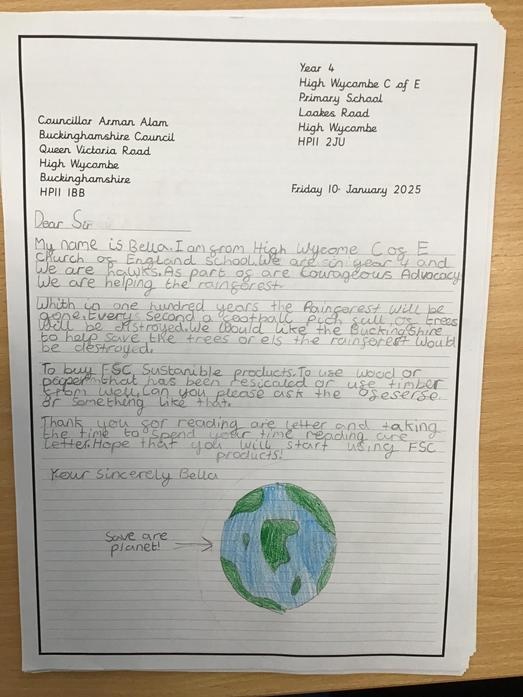 Year 4
High Wycombe C of E
Primary School
Loakes Road
High Wycombe
HP11 2JU
Councillor Arman Alam
Buckinghamshire Council
Queen Victoria Road
High Wycombe
Buckinghamshire
HP11 1BB
Friday 10 January 2025
Dear Sir
My name is Bella. I am from High Wycome C of E
Church of England School. We are in year 4 and
We are hawks. As part of are Courageous Advocacy
We are helping the rainforest.
Whith in one hundred years the Rainforest will be
gone. Every Second a football Pich full of trees
Will be distroyed. We Would like the Buckingshire
to help save the trees or els the rainforest Would
be destroyed.
To buy FSC, Sustanible products. To use wood or
paper that has been resicaled or use timber
from Well. Can you please ask the
or something like that.
Thank you for reading are letter and taking
the time to Spend your time reading are
letter. Hope that you will start using FSC
products!
Your Sincerely Bella
Save are
planet!